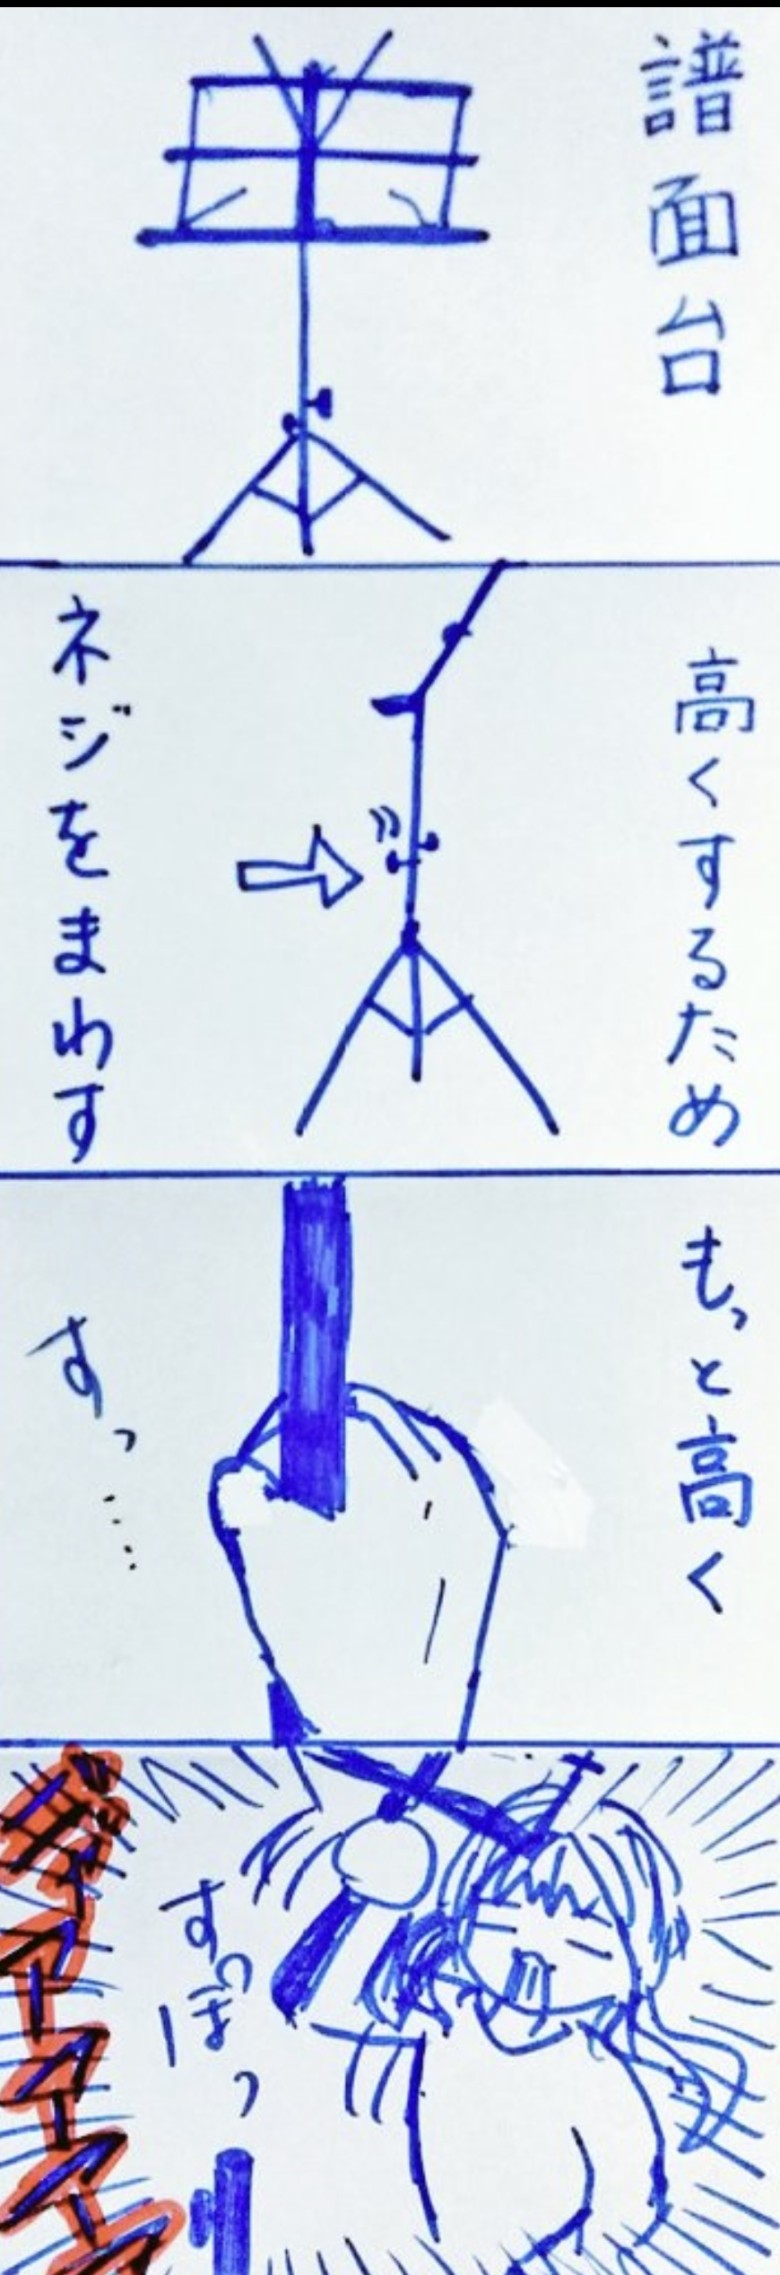 譜面台
高くするため
ネジをまわす
もっと高く
すっ……
すっぽーっ
ギャアアアア